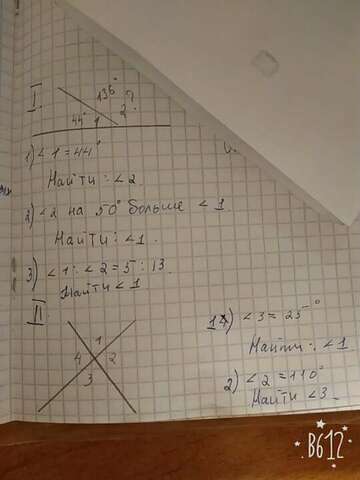 I.
136° ?
44° 1 2
1) < 1 = 44°
Найти: < 2.
2) < 2 на 50° больше < 1.
Найти: < 1.
3) < 1 : < 2 = 5 : 13.
Найти < 1
II.
1
4 2
3
1) < 3 = 25°
Найти: < 1
2) < 2 = 110°
Найти < 3.
B612